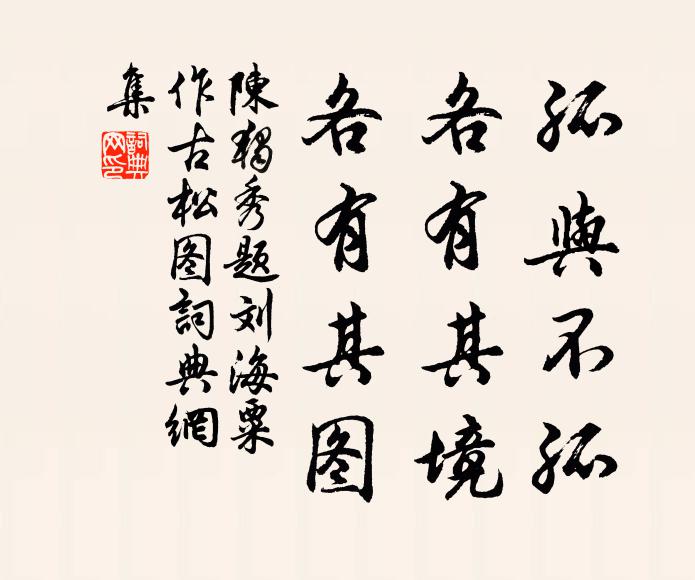 孤與不孤
各有其境
各有其图
陳獨秀题刘海粟
作古松图詞典網
集
詞典網印